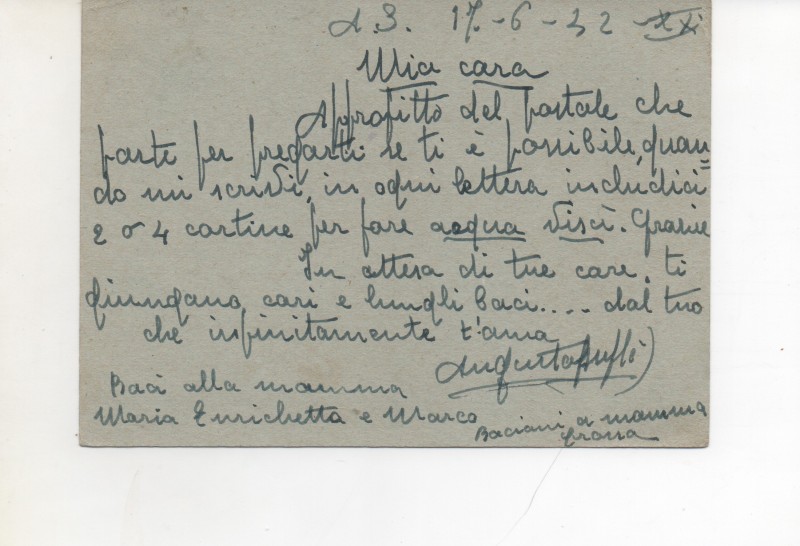 A. S. 17-6-42-XXI
Mia cara
Approfitto del postale che
parte per pregarti se ti è possibile, quan=
do mi scrivi, in ogni lettera includici
2 o 4 cartine per fare acqua viscì. Grazie
In attesa di tue care, ti
giungano cari e lunghi baci.... dal tuo
che infinitamente t'ama
Baci alla mamma
Maria Enrichetta e Marco
Bacioni a mamma
grossa